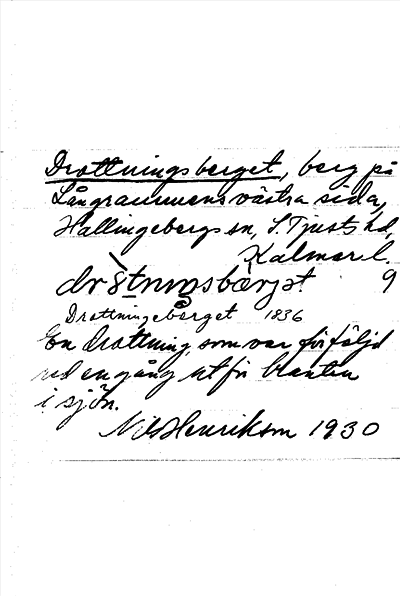 Drottningsberget, berg på
Långrammens västra sida,
Hallingebergs sn, S. Tjusts hd,
Kalmar l.
9
Drottningebärget 1836
En drottning, som var förföljd
red en gång ut för branten
i sjön.
Nils Henrikson 1930